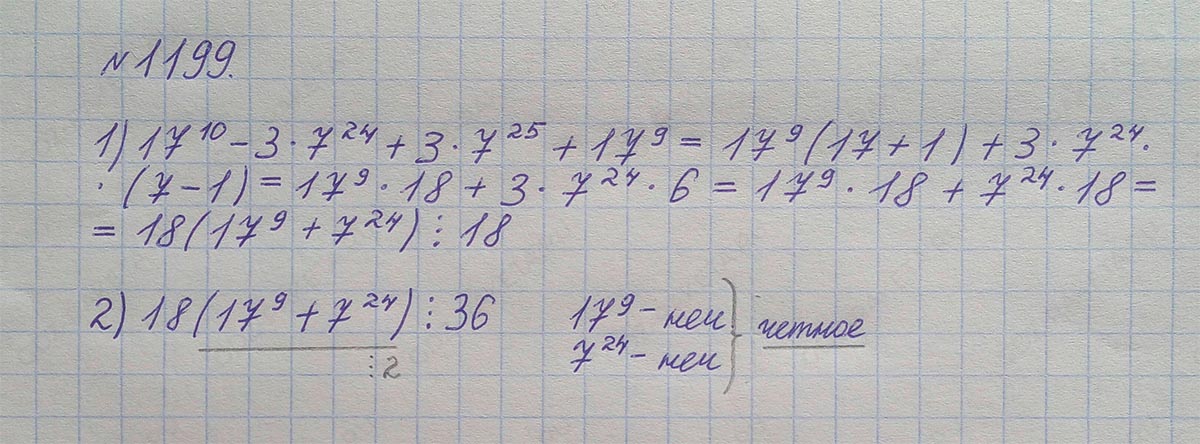 №1199.
1) 17¹⁰ – 3 · 7²⁴ + 3 · 7²⁵ + 17⁹ = 17⁹(17 + 1) + 3 · 7²⁴ ·
· (7 – 1) = 17⁹ · 18 + 3 · 7²⁴ · 6 = 17⁹ · 18 + 7²⁴ · 18 =
= 18(17⁹ + 7²⁴) ⋮ 18
2) 18(17⁹ + 7²⁴) ⋮ 36 17⁹ – неч } четное
⋮2 7²⁴ – неч